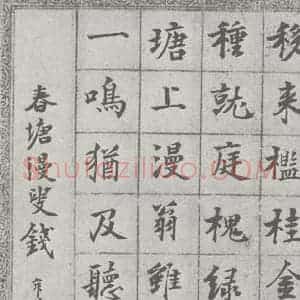 移来檻桂金
種就庭槐绿
塘上漫翁雖
一鳴猶及聽
春塘漫叟錢
Shufaziliao.com